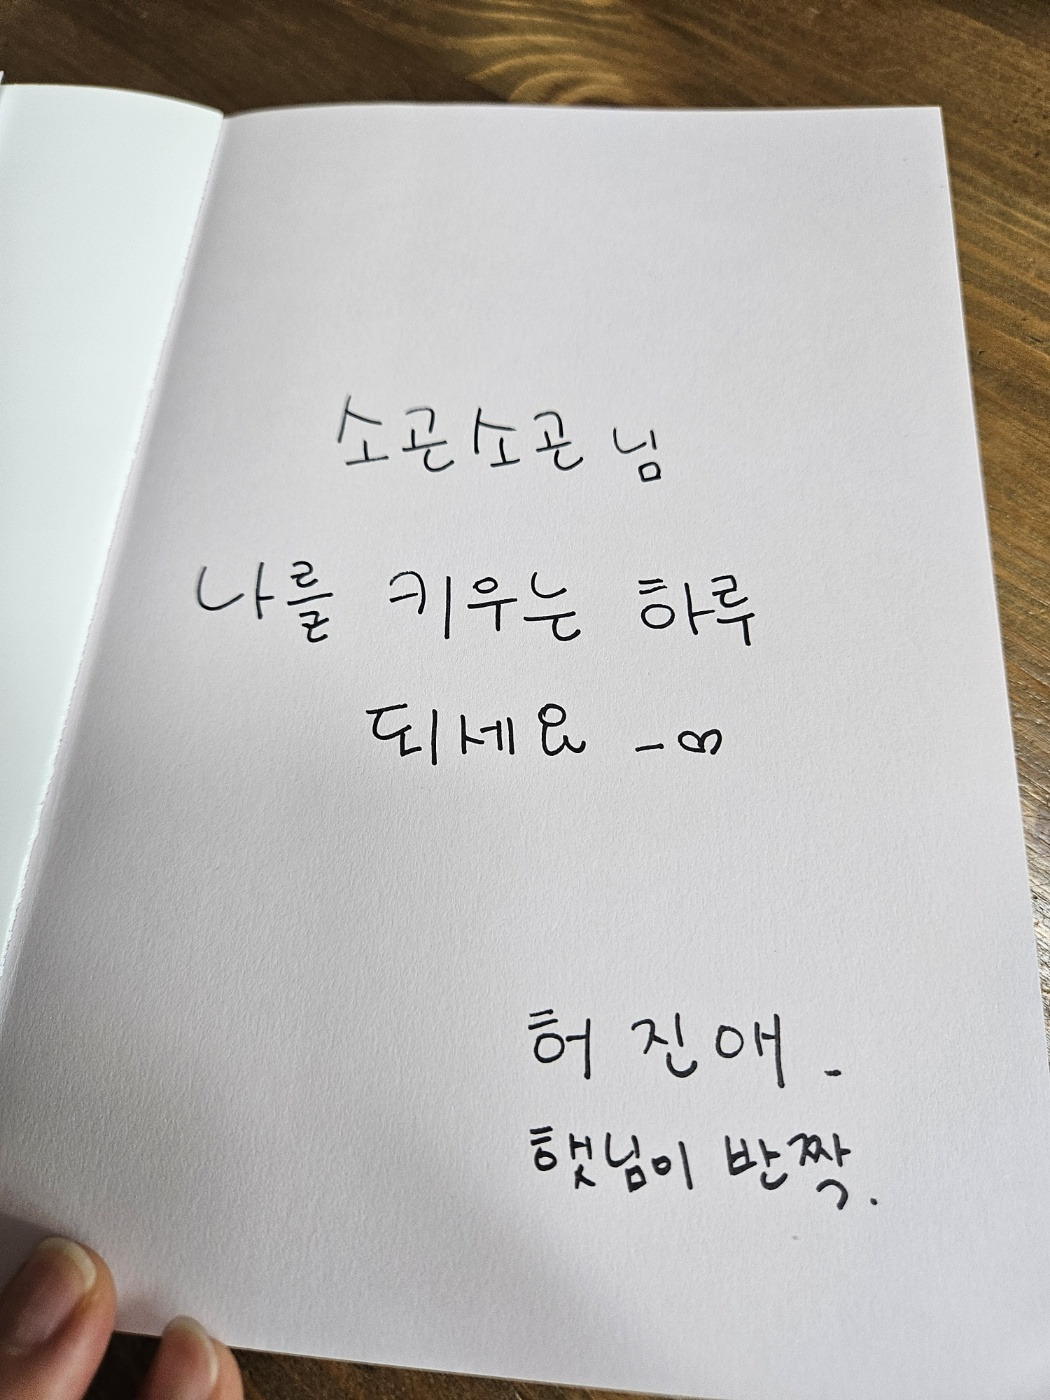 소곤소곤 님
나를 키우는 하루
되세요 -
허진애.
햇님이 반짝.